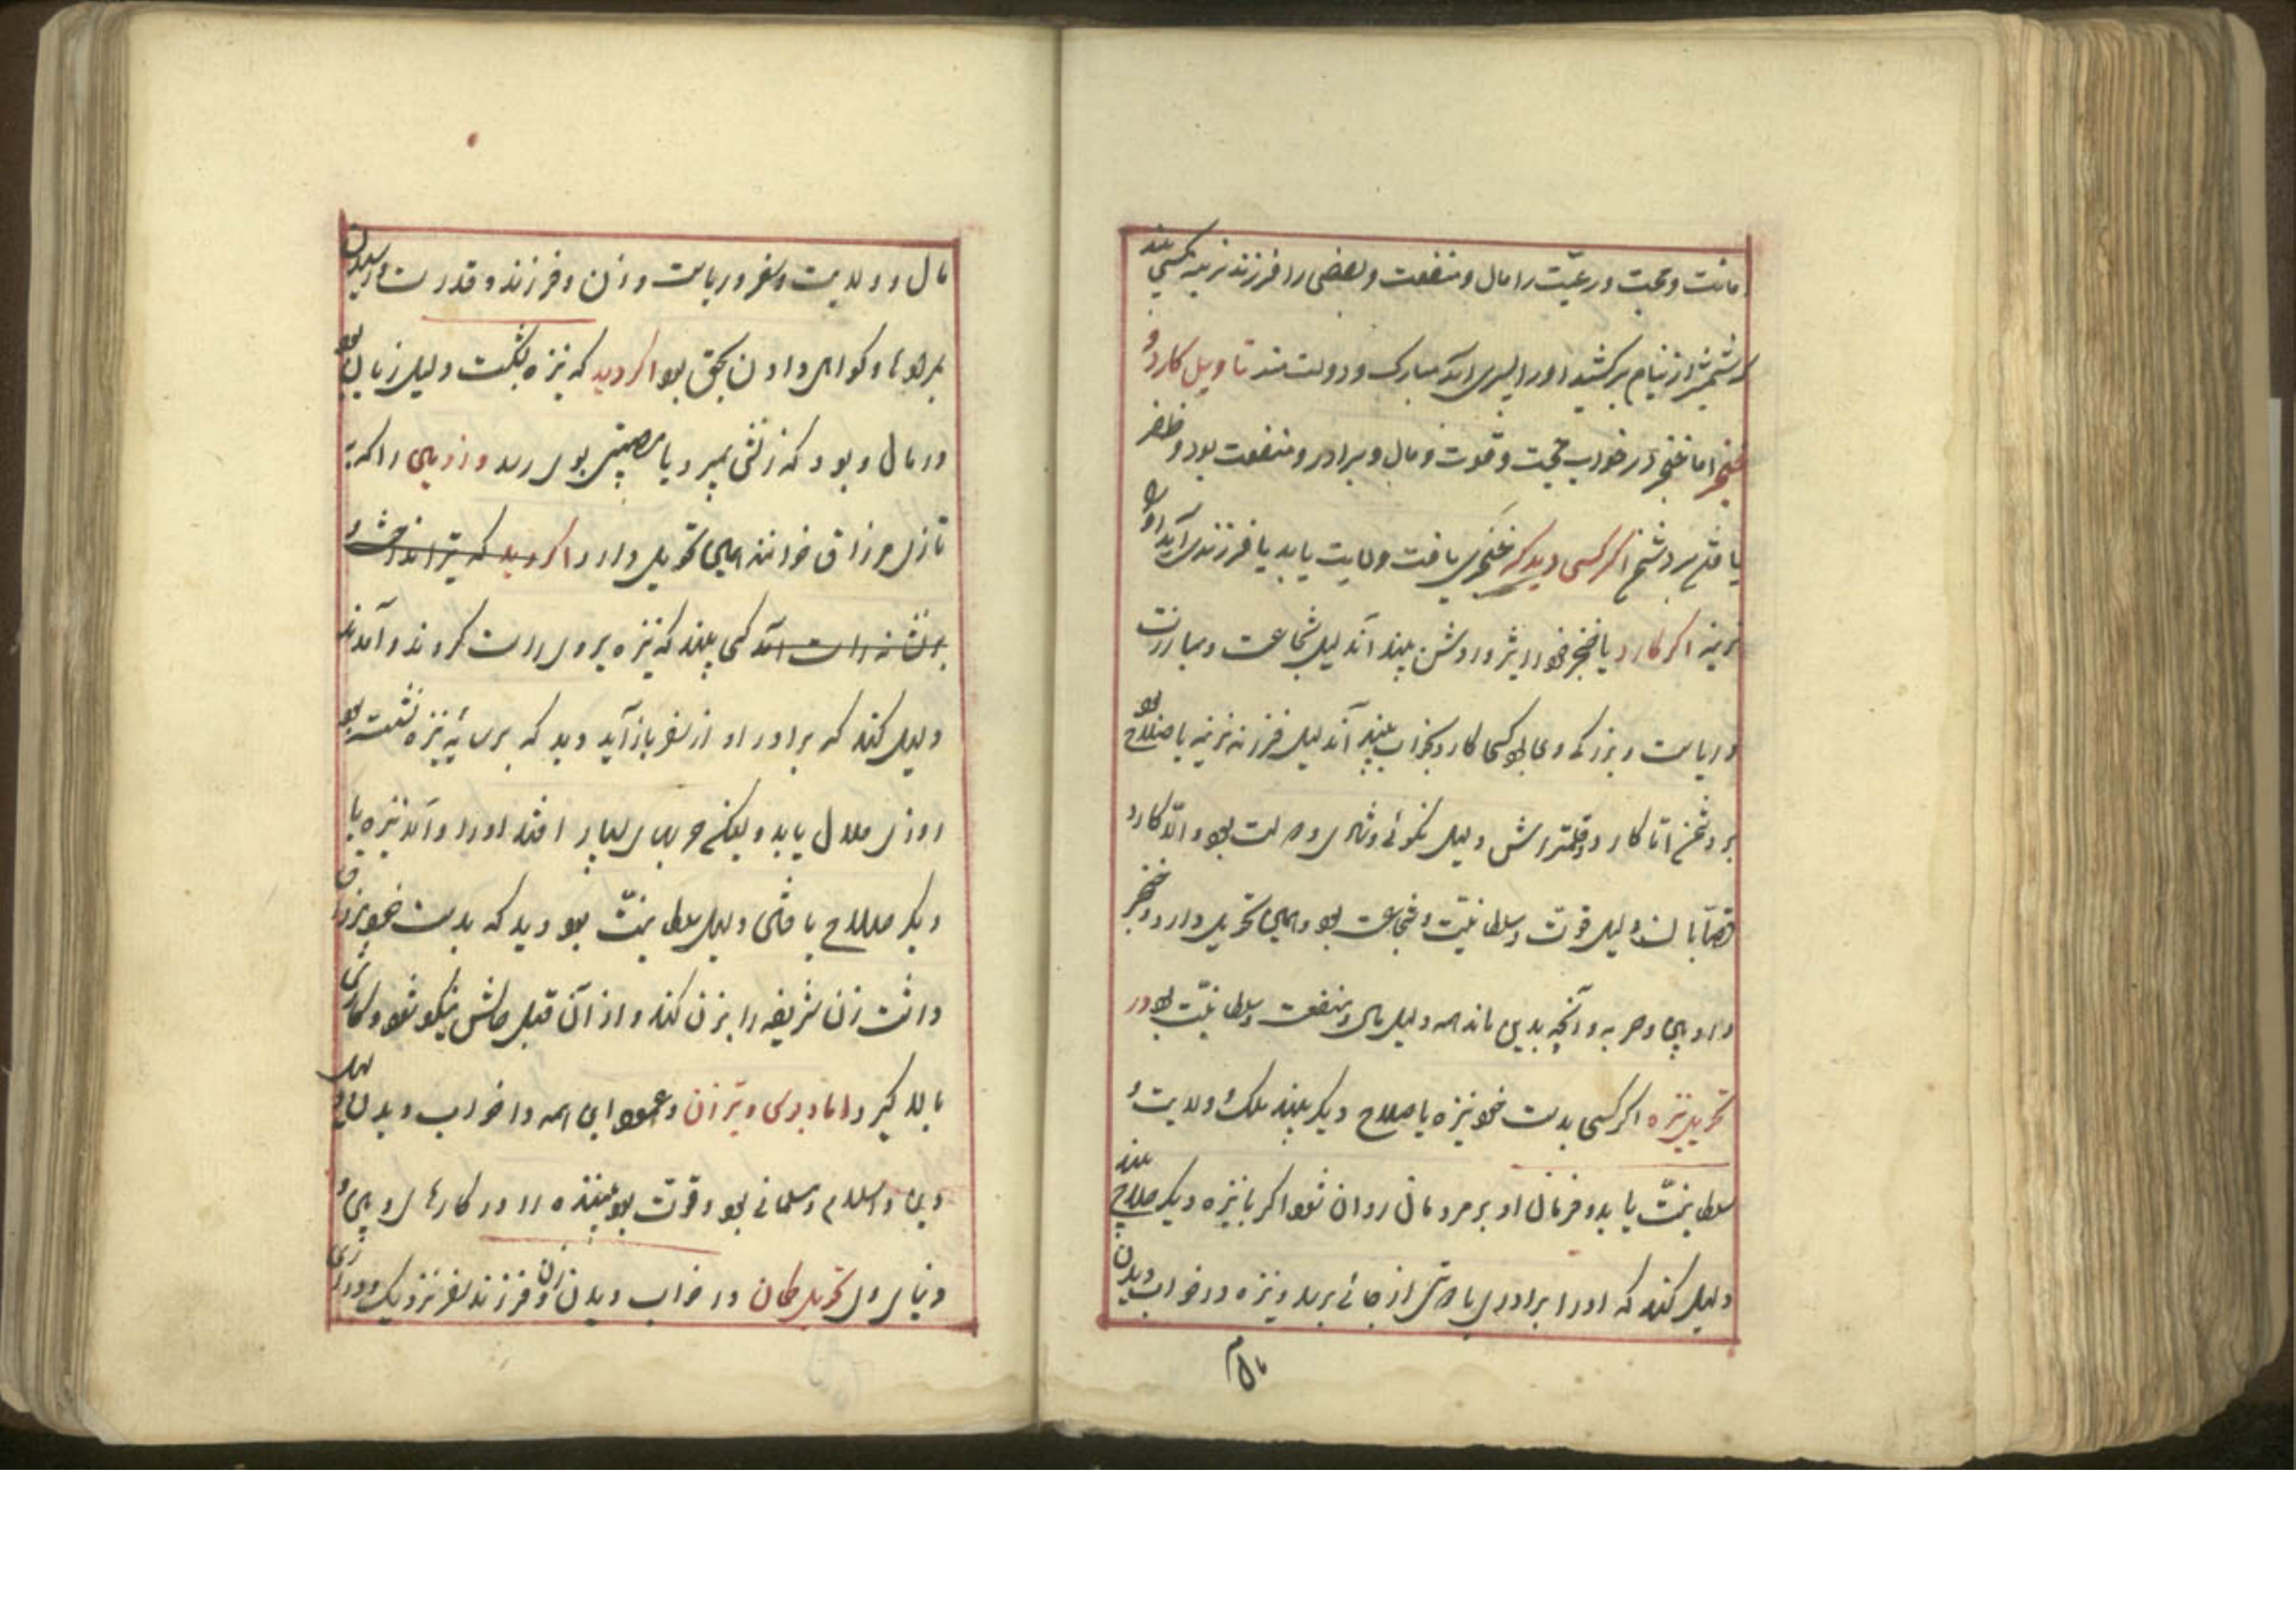 امانت و محبت و رعیّت را مال و منفعت و بعضی را فرزند نرینه کسی بیند
که شمشیر از نیام برکشید اورا پسری آید مبارک و دولت مند تاویل کارد و
خنجر اما خنجر در خواب حجت و قوت و مال و برادر و منفعت بود و ظفر
یافتن بر دشمن اگر کسی دید که خنجری یافت ولایت یابد یا فرزندی آید اورا
نرینه اگر کارد یا خنجر خود تیز و روشن بیند آن دلیل شجاعت و مبارزت
و ریاست و بزرگی وی بود کسی کارد بخواب بیند آن دلیل فرزند نرینه یا صلاح بود
بر دشمن اما کارد و قلمتراش دلیل نکوئی و شادی و بود و اما کارد
قصابان دلیل قوّت و سلطانیّت و شجاعت بود و همین تحویل دارد و خنجر
و حربه و آنچه بدین ماند همه دلیل مال و منفعت و سلطانیّت بود در
تحویل نیزه اگر کسی بدست خود نیزه یا صلاح دیگر بیند ملک و ولایت و
سلطانیّت یابد و فرمان او بر مردمان روان شود اگر با نیزه دیگر صلاح بیند
دلیل کند که اورا برادری یا از جائی برسد و نیزه در خواب دیدن
مال
مال و ولایت و سفر و ریاست و زن و فرزند و قدرت رسیدن
بمرادها و گواهی دادن بحق بود اگر دید که نیزه بشکست دلیل زیان بود
در مال و بود که زنش بمیرد یا مصیبتی بوی رسد را که به
تازی مزراق خوانند همین تحویل دارد اگر دید که تیر انداخت و
بر نشانه راست آمد کسی بیند که نیزه بر وی راست کردند و آمدند
دلیل کند که برادر او از سفر باز آید دید که بر سایهٔ نیزه نشسته بود
روزی حلال یابد و لیکن بسیار افتد اورا و آمد نیزه یا
دیگر صلاح یافتی دلیل سلطانیّت بود دید که بدست خود
داشت زن شریفه را بزن کند و از آن قبل حالش نیکو شود و کارش
بالا گیرد اما و تیر آن و عمود این همه در خواب دیدن
دین و اسلام و مسلمانی بود و قوّت بود بیننده را در کارهای دین و
دنیاوی تحویل کمان در خواب دیدن زن و فرزند سفر نزدیک و دور